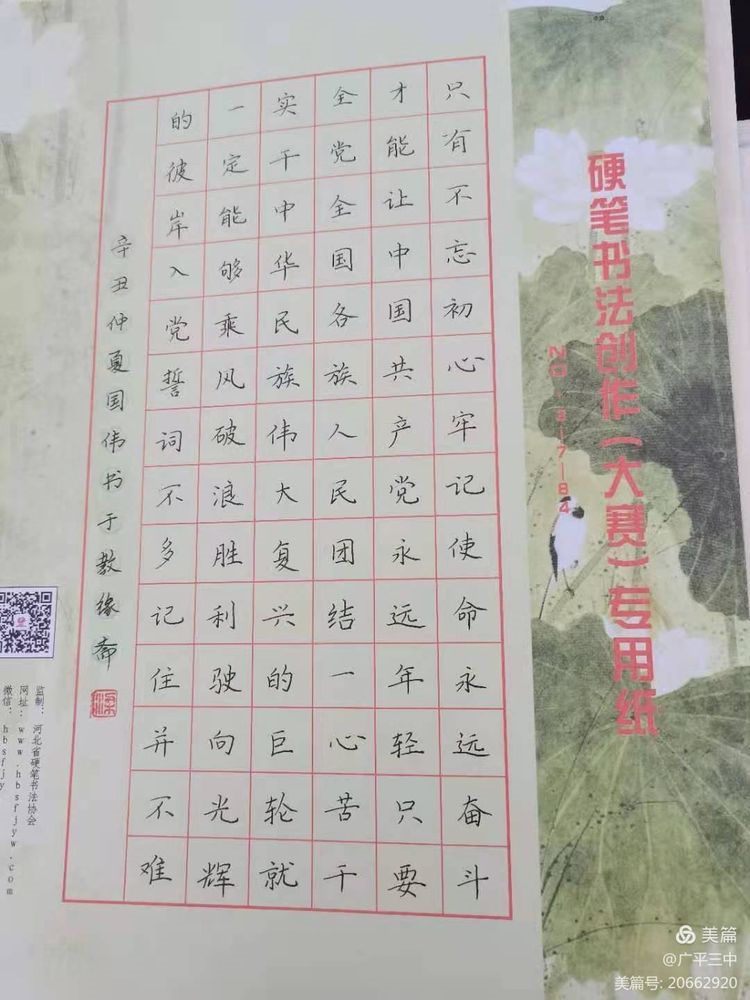 硬笔书法创作（大赛）专用纸
只有不忘初心牢记使命永远奋斗
才能让中国共产党永远年轻只要
全党全国各族人民团结一心苦干
实干中华民族伟大复兴的巨轮就
一定能够乘风破浪胜利驶向光辉
的彼岸入党誓词不多记住并不难
辛丑仲夏国伟书于教缘斋
监制：河北省硬笔书法协会
网址：www.hbsfjyw.com
微信：hbsfjy
美篇
@广平三中
美篇号: 20662920